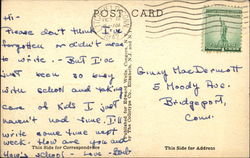 POST CARD
Hi-
Please don't think I've
forgotten or didn't mean
to write. - But I've
just been so busy
with school and taking
care of kids I just
haven't had time. I'll
write some time next
week. How are you and
How's school. - Love -
This Side for Correspondence
Ginny MacDermott
5 Moody Ave.
Bridgeport,
Conn.
This Side for Address